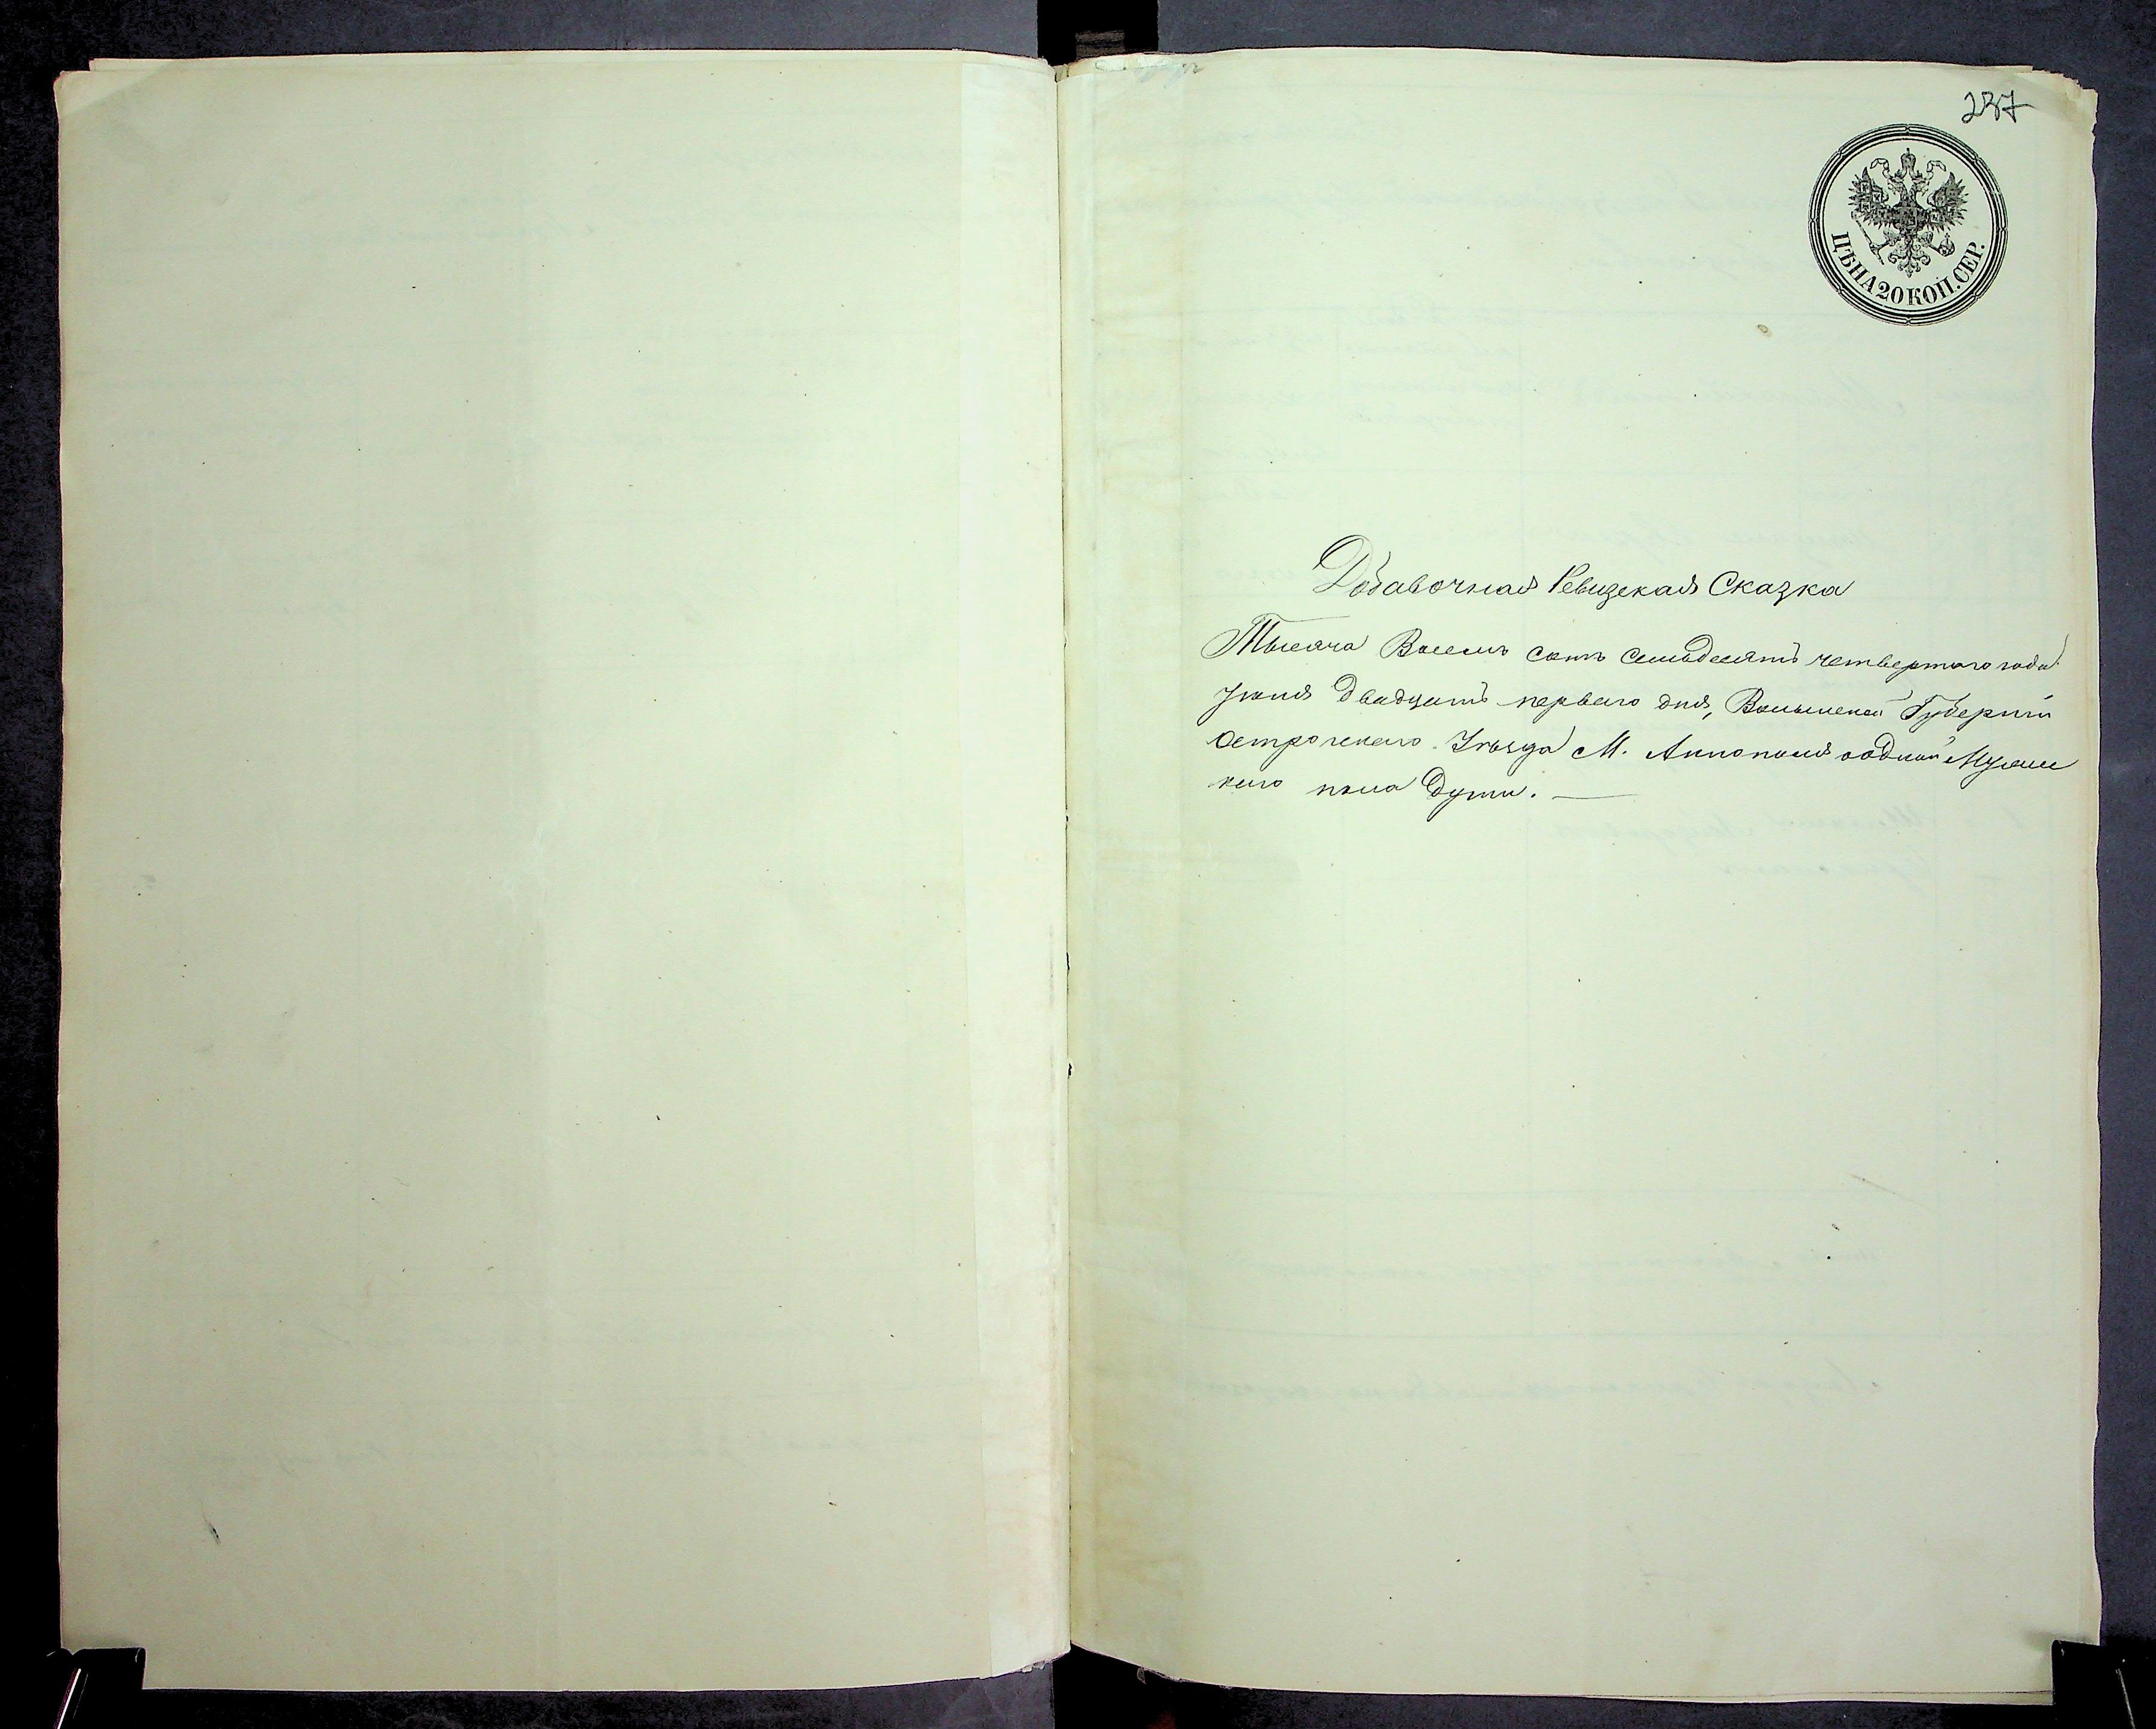 237
ЦѢНА 20 КОП. СЕР.
Добавочная Ревизская Сказка
Тысяча Восемь сотъ семьдесятъ четвертаго года
Іюня двадцать перваго дня, Волынской Губерніи
Острожскаго Уѣзда М. Аннополя о одной Мужес
каго пола души. —